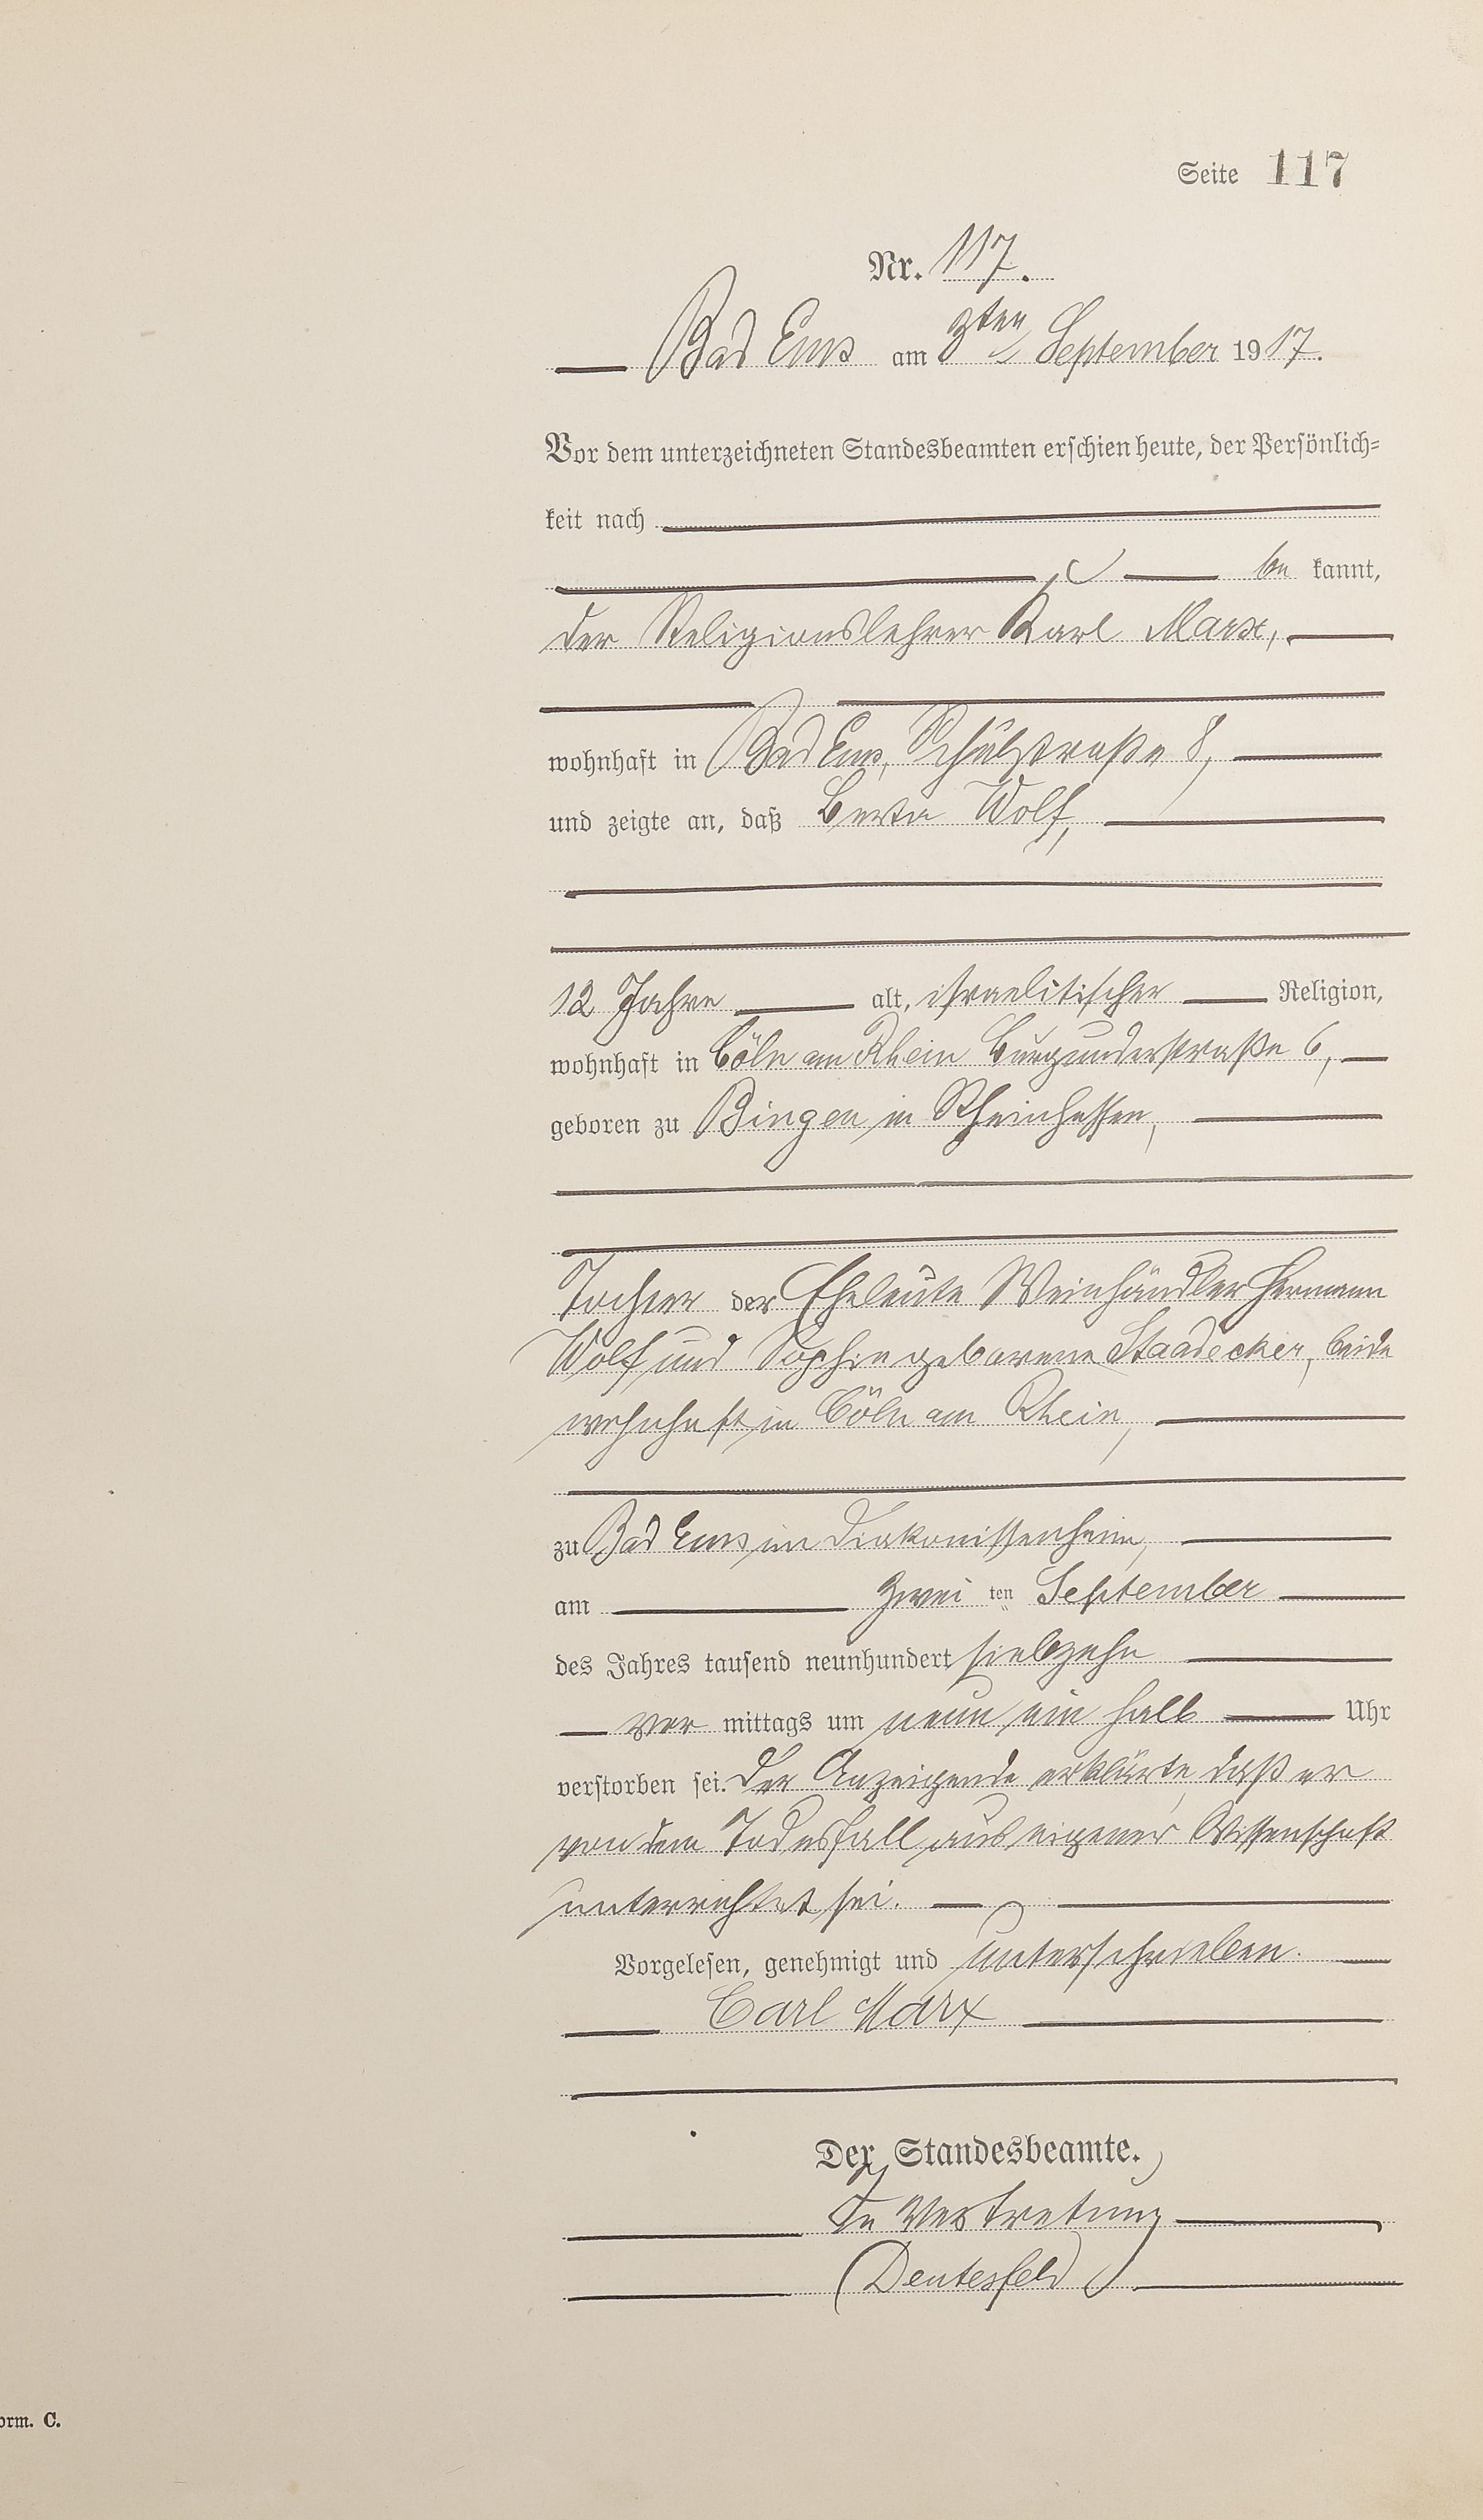 Seite 117
Nr. 117.
Bad Ems am 3ten September 1917.
Vor dem unterzeichneten Standesbeamten erschien heute, der Persönlich=
keit nach
be kannt,
der Religionslehrer Karl Marx,
wohnhaft in Bad Ems, Schulstraße 8,
und zeigte an, daß Berta Wolf,
12 Jahre alt, israelitischer Religion,
wohnhaft in Cöln am Rhein Burgunderstraße 6,
geboren zu Bingen in Rheinhessen,
Tochter der Eheleute Weinhändler Hermann
Wolf und Sophie geborene Staadecker, beide
wohnhaft in Cöln am Rhein,
zu Bad Ems im Diakonissenheim,
am zwei ten September
des Jahres tausend neunhundert siebzehn
vor mittags um neun ein halb Uhr
verstorben sei. Der Anzeigende erklärte, daß er
von dem Todesfall aus eigener Wissenschaft
unterrichtet sei.
Vorgelesen, genehmigt und unterschrieben.
Carl Marx
Der Standesbeamte.
In Vertretung
Dentesfeld
orm. C.